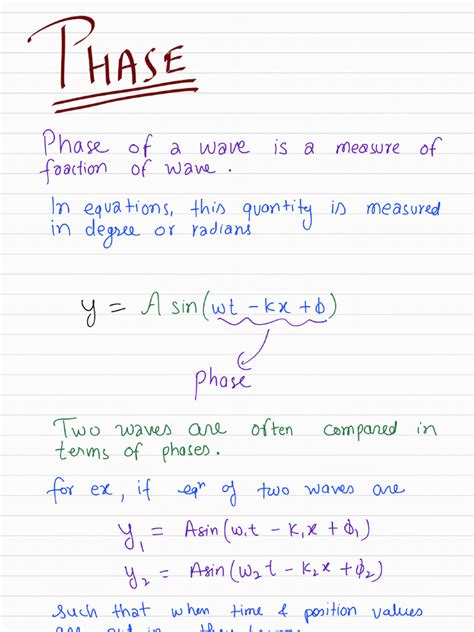 PHASE
Phase of a wave is a measure of
fraction of wave.
In equations, this quantity is measured
in degree or radians
y = A sin(ωt - kx + ϕ)
phase
Two waves are often compared in
terms of phases.
for ex, if eqⁿ of two waves are
y₁ = A sin(ω₁t - k₁x + ϕ₁)
y₂ = A sin(ω₂t - k₂x + ϕ₂)
such that when time & position values
are put in